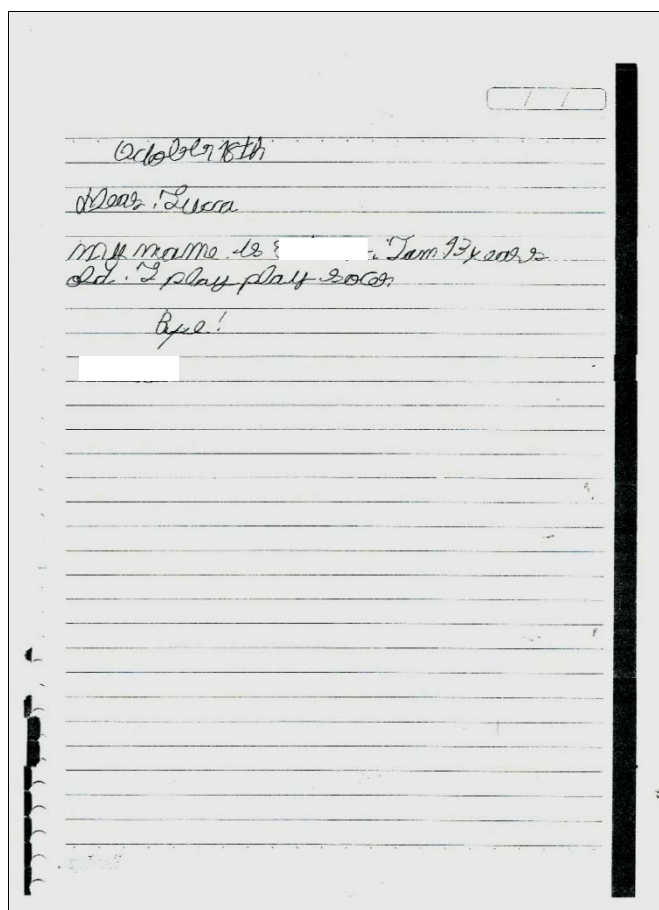 October 18th
Dear, Lucca
my name is . I am 13 years
old. I play play socer
Bye!